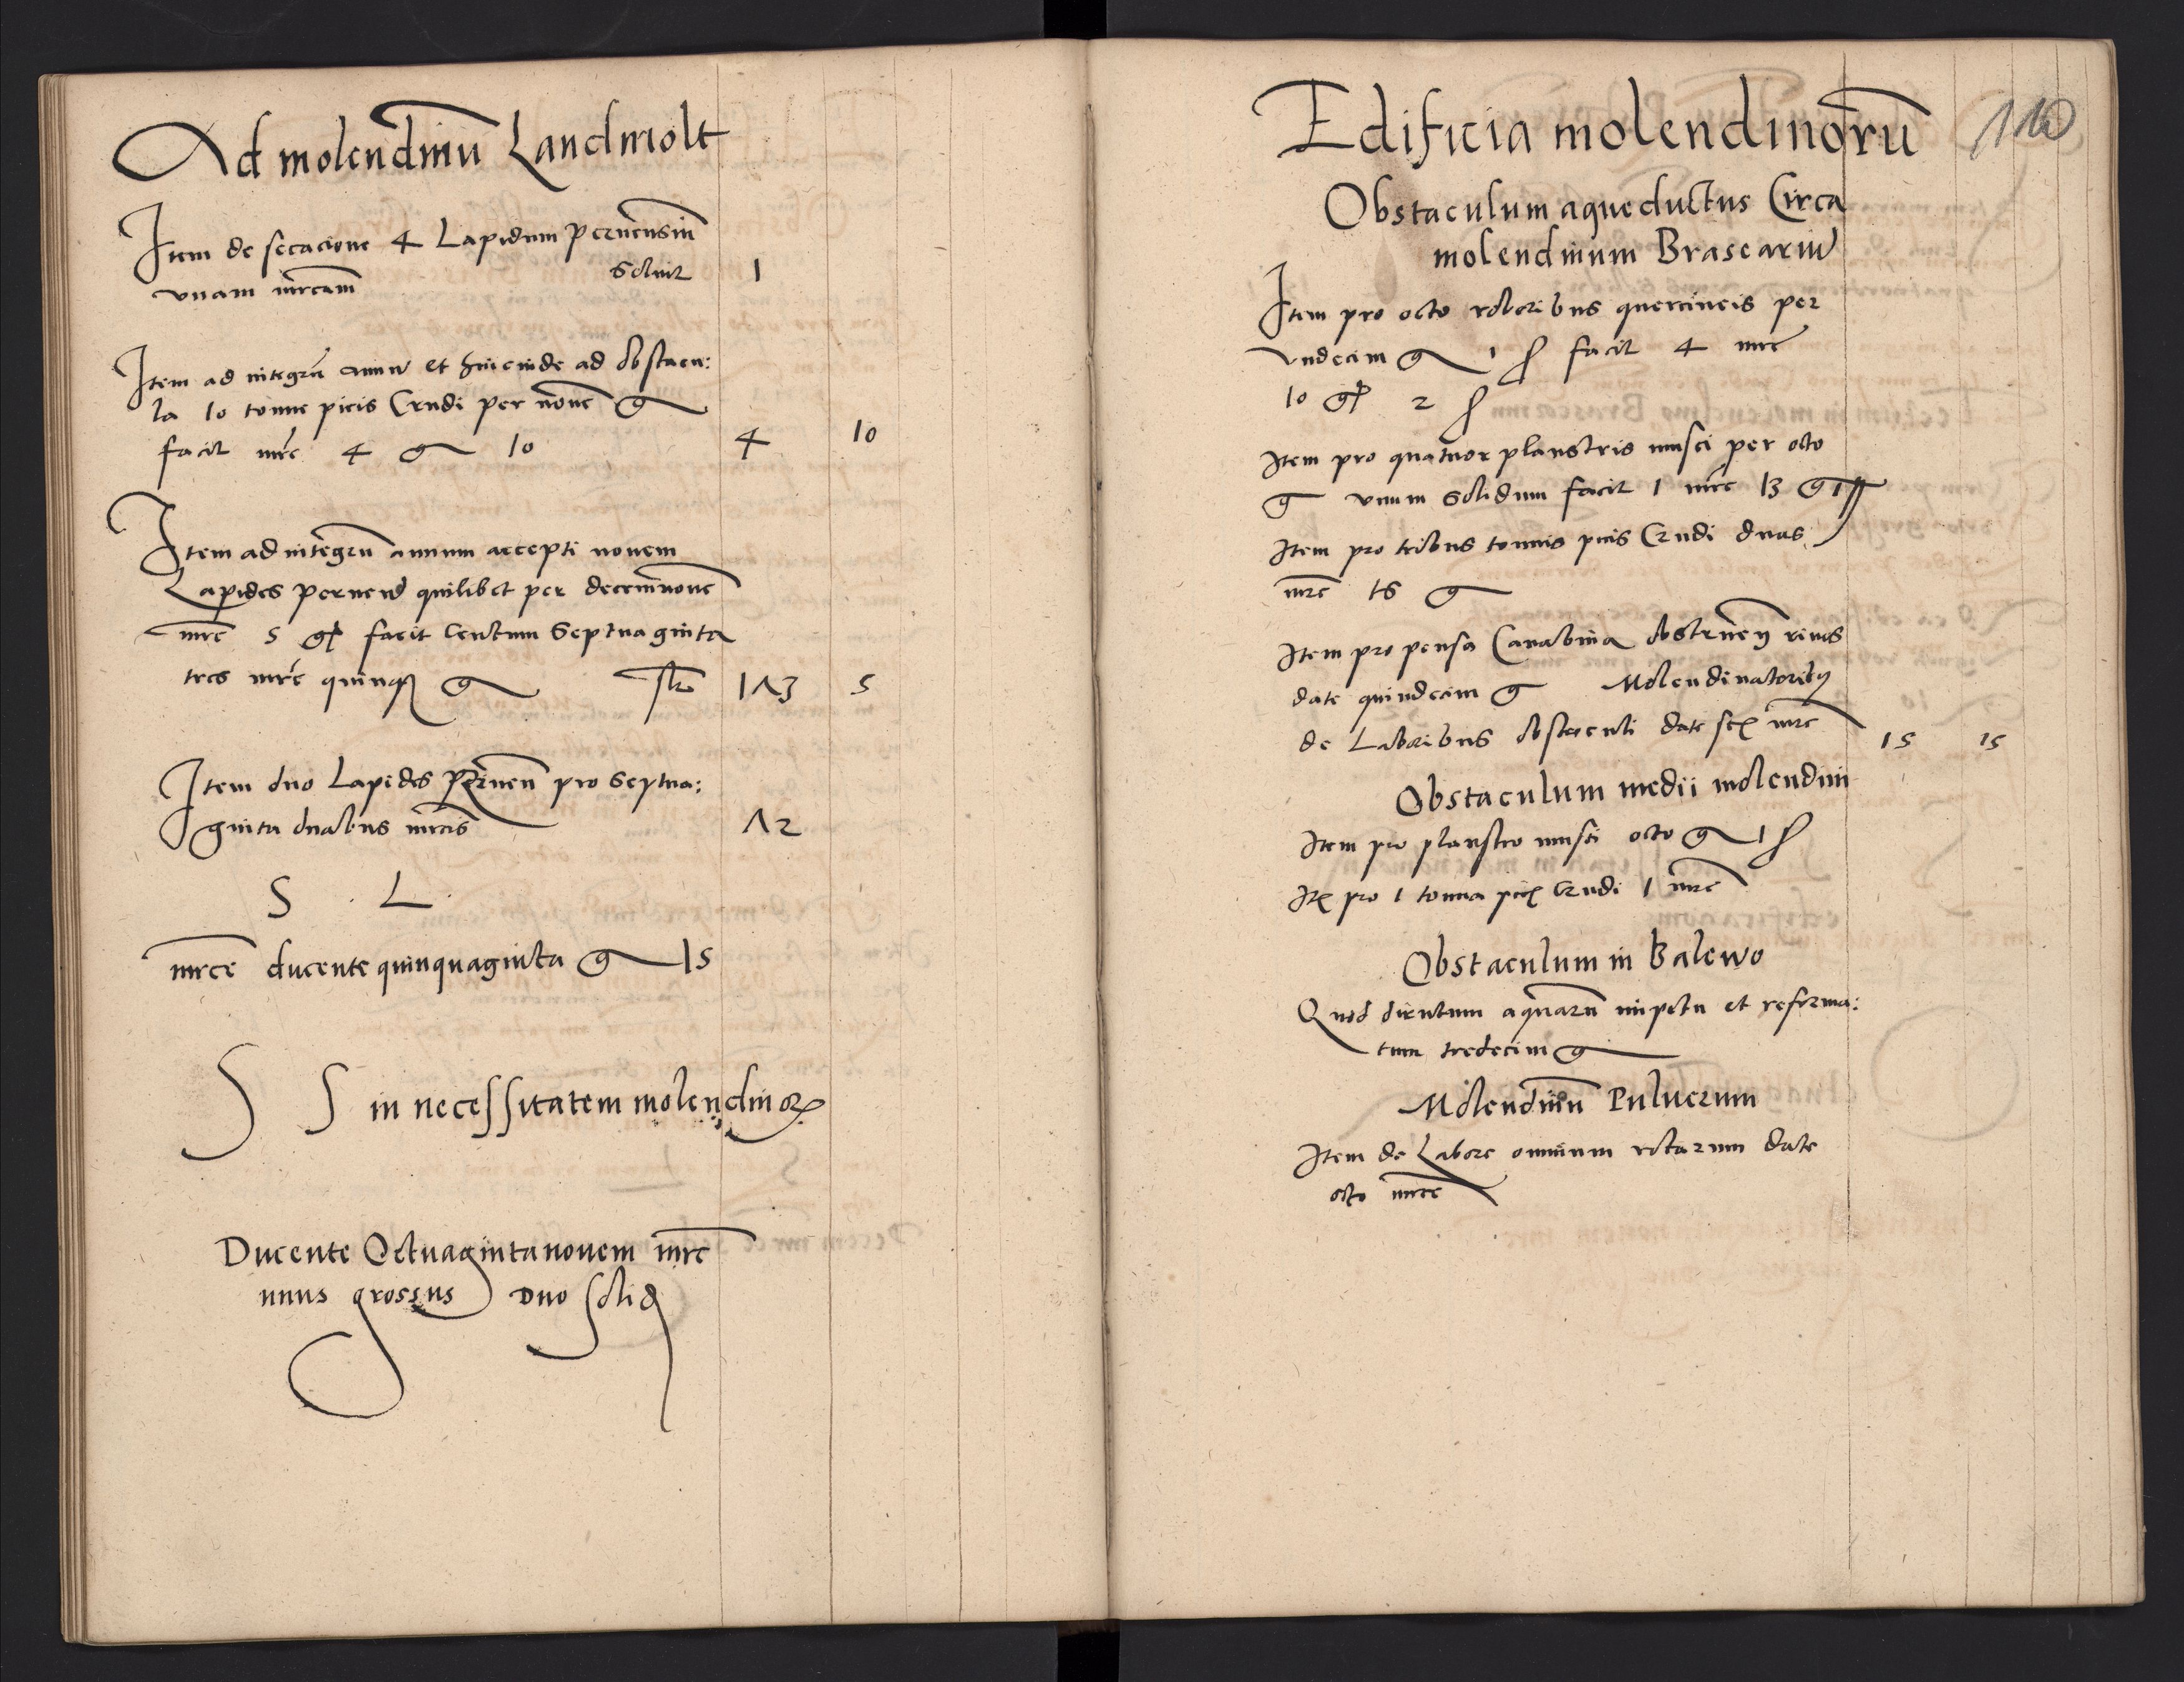 Ad molendinū Landmolt
Item de secacione 4 Lapidum pernensiū
Soluit
vnam mrcam 1
Item ad integrū annū et hincinde ad obstacu:
la 10 tonne picis Crudi per none g
facit mrc 4 g 10 4 10
Item ad integrū annum accepti nouem
Lapides pernen quilibet per decemnoue
mrc 5 gr facit Centum Septuaginta
tres mrc quinq g 173 5
Item duo Lapides Pernen pro Septua:
ginta duabus mrcis 72
S L
mrce ducente quinquaginta g 15
S S in necessitatem molendinor
Ducente Octuaginta nouem mrc
unus grossus Duo solid
110
Edificia molendinorū
Obstaculum aqueductus Circa
molendinum Braseariū
Item pro octo roboribus quercineis per
vndecim g 1 s facit 4 mrc
10 gr 2 s
Item pro quatuor plaustris musci per octo
g vnum Solidum facit 1 mrc 13 g
Item pro tribus tonnis picis Crudi duas
mrc 16 g
Item pro pensa Canabina obstruen rimas
date quindecim g Molendinatorib9
de Laboribus obstaculi date sex mrc 15 15
Obstaculum medii molendini
Item pro plaustro musci octo g 1 s
Ite pro 1 tonna picis Crudi 1 mrc
Obstaculum in Balewo
Quod dirutum aquarū impetu et reforma:
tum tredecim g
Molendinū Puluerum
Item de Labore omnium rotarum date
octo mrc